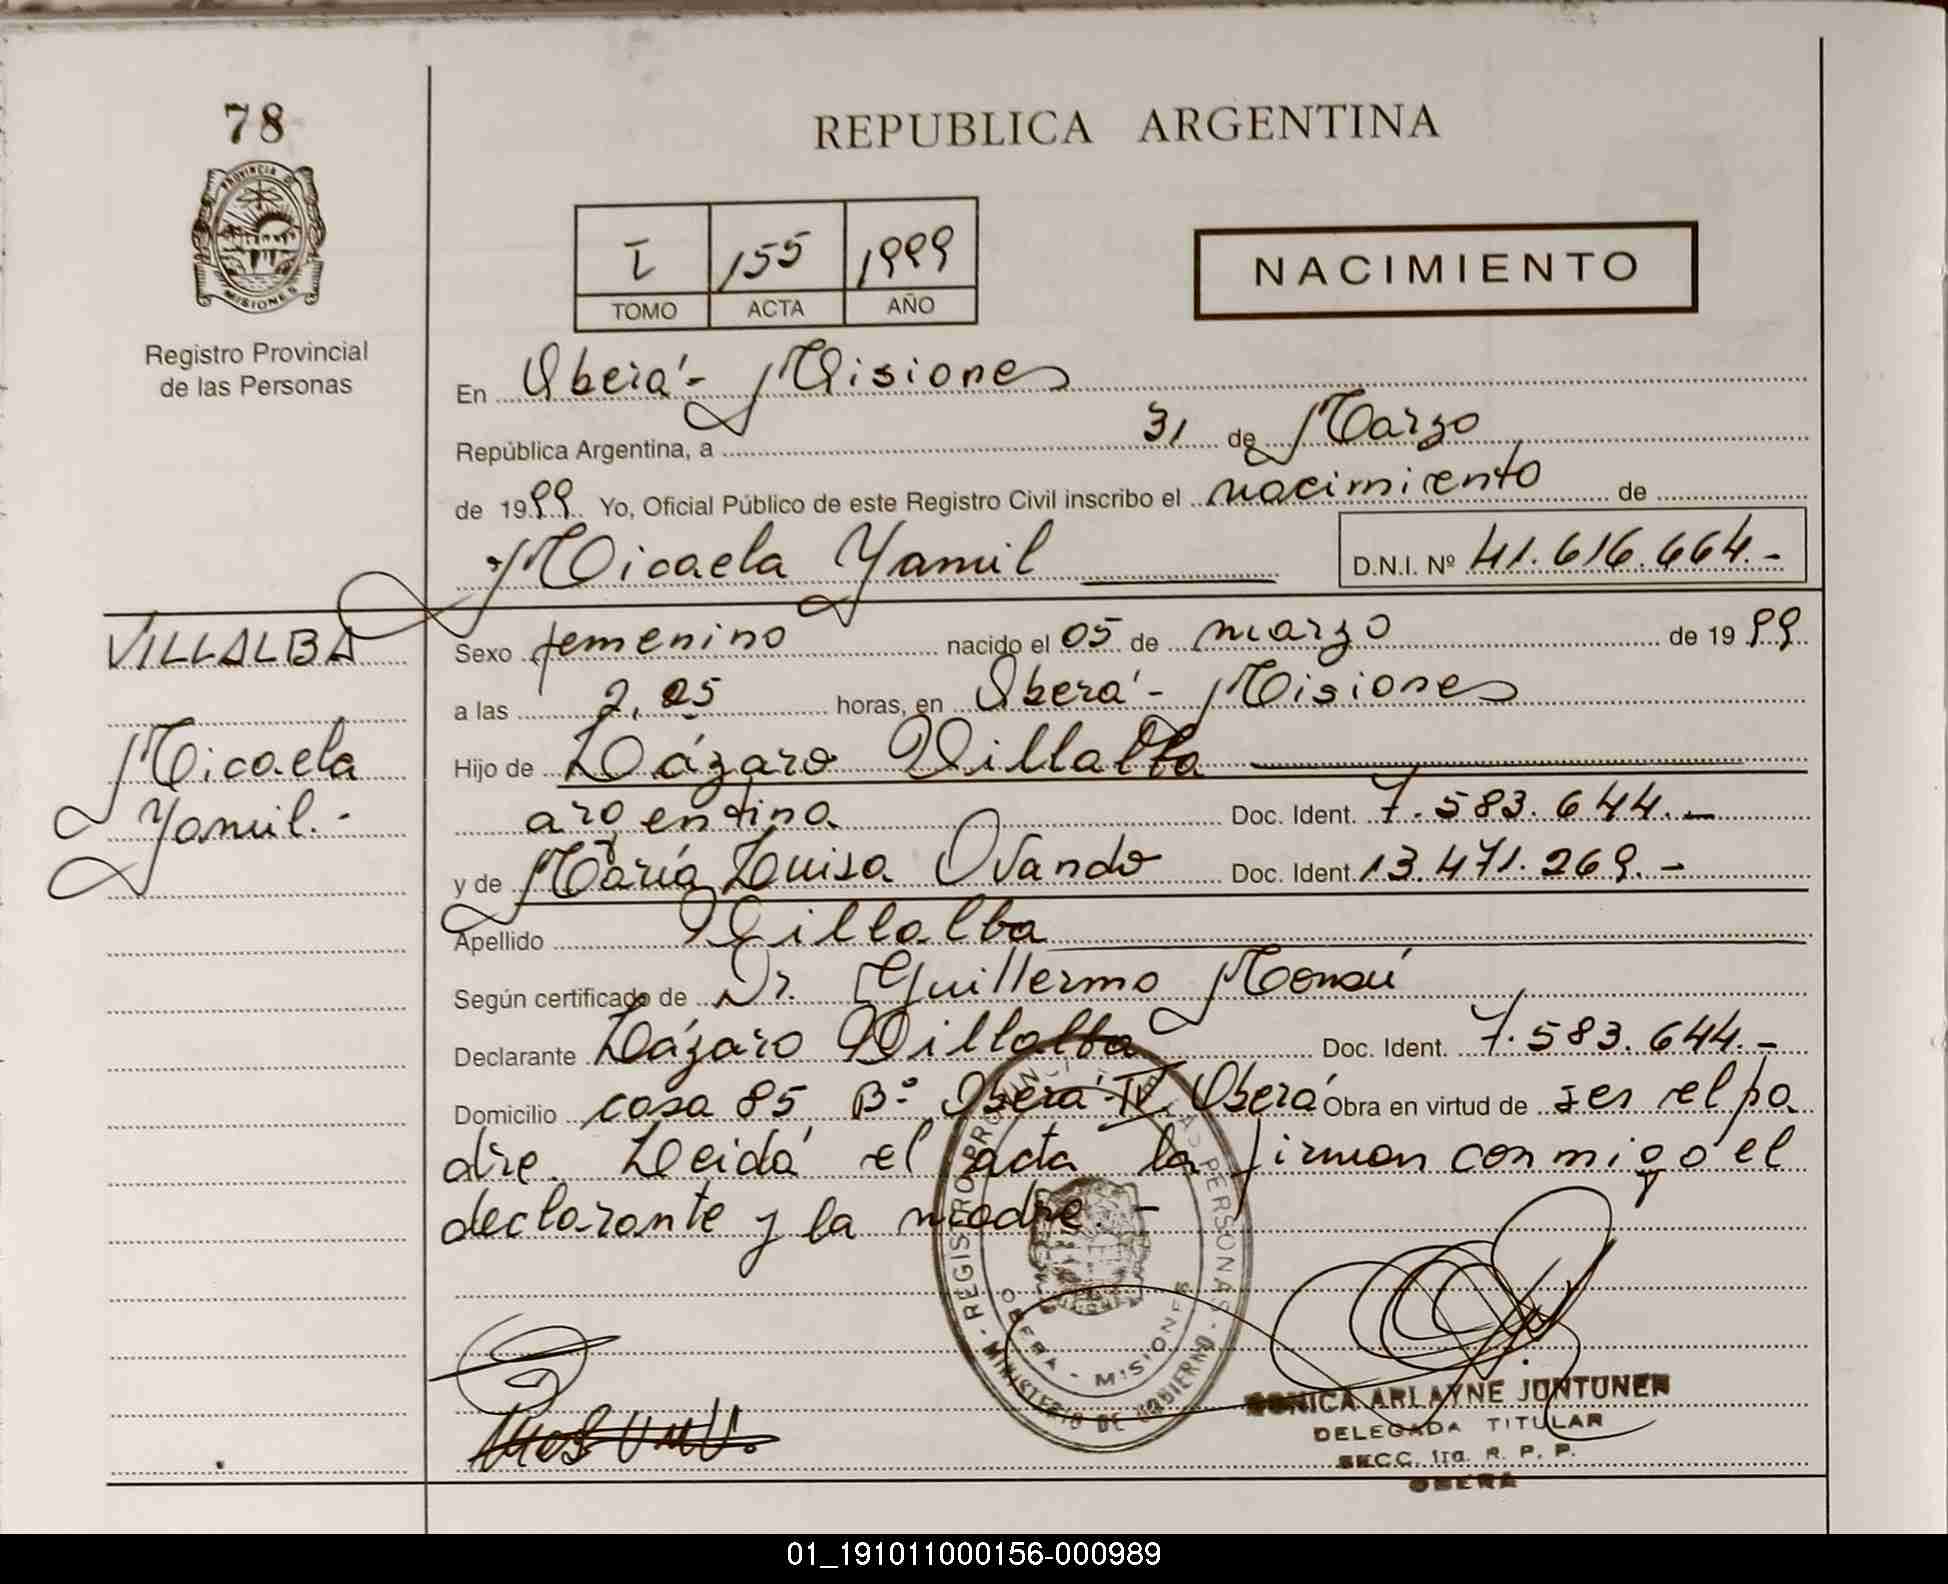 78
REPUBLICA ARGENTINA
PROVINCIA D
MISIONES
Registro Provincial
de las Personas
I 155 1999
TOMO ACTA AÑO
NACIMIENTO
En Oberá - Misiones
República Argentina, a 31 de Marzo
de 1999 Yo, Oficial Público de este Registro Civil inscribo el nacimiento de
Micaela Yamil D.N.I. Nº 41.616.664.-
VILLALBA
Micaela
Yamil.-
Sexo femenino nacido el 05 de marzo de 1999
a las 2,05 horas, en Oberá - Misiones
Hijo de Lázaro Villalba
argentino Doc. Ident. 7.583.644.-
y de María Luisa Ovando Doc. Ident. 13.471.269.-
Apellido Villalba
Según certificado de Dr. Guillermo
Declarante Lázaro Villalba Doc. Ident. 7.583.644.-
Domicilio casa 85 Bº Oberá IV Oberá Obra en virtud de ser el pa
dre. Leida el acta la firman conmigo el
declarante y la madre.-
REGISTRO PROVINCIAL DE LAS PERSONAS - MINISTERIO DE GOBIERNO -
OBERA - MISIONES
ARLAYNE JUNTUNEN
DELEGADA TITULAR
SECC. 1ra. R. P. P.
OBERA
01_191011000156-000989